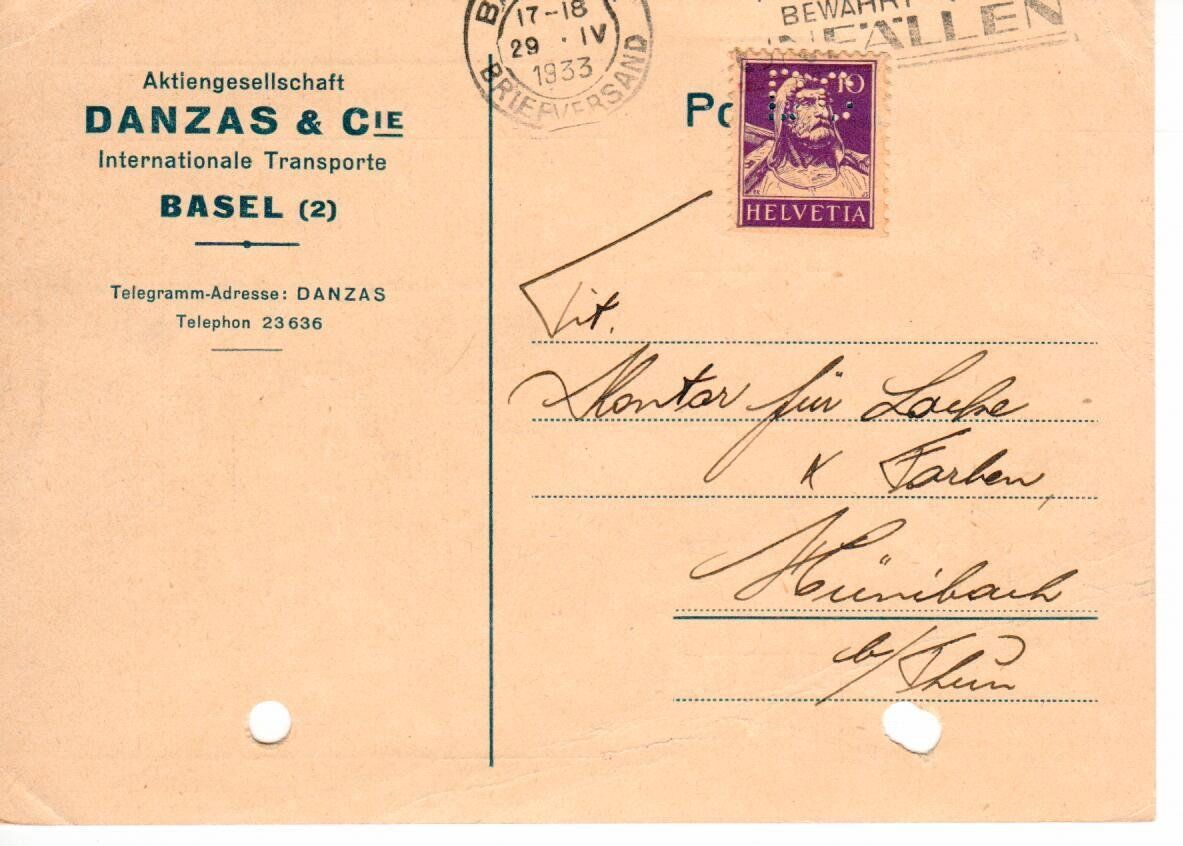 17-18
29 · IV
1933
BRIEFVERSAND
BEWAHRT
Aktiengesellschaft
DANZAS & CIE
Internationale Transporte
BASEL (2)
Telegramm-Adresse: DANZAS
Telephon 23636
Po
10
HELVETIA
Tit.
Kontor für Lacke
& Farben,
Hünibach
b/Thun